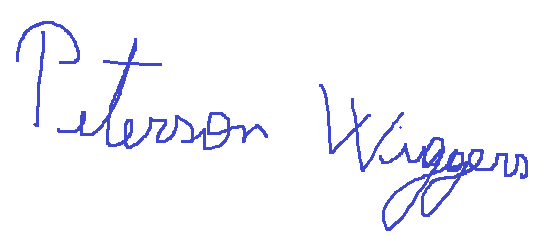 Peterson Wiggers